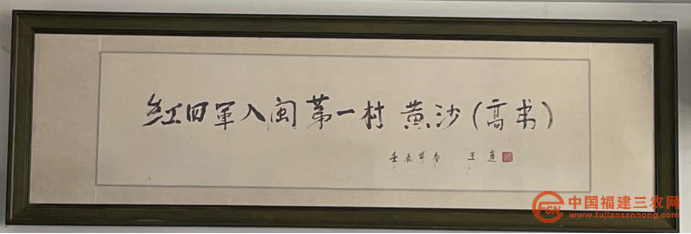 红四軍入闽第一村 黄沙(高书)
壬辰年春 王直
中国福建三农网
www.fujiansannong.com